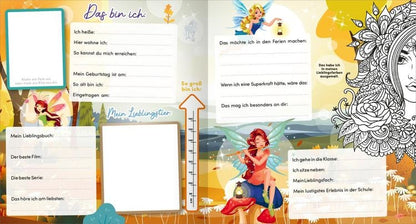 Das bin ich
Ich heiße:
Hier wohne ich:
So kannst du mich erreichen:
Mein Geburtstag ist am:
So alt bin ich:
Eingetragen am:
So groß
bin ich:
Mein Lieblingstier
Mein Lieblingsbuch:
Der beste Film:
Die beste Serie:
Das höre ich am liebsten:
Das möchte ich in den Ferien machen:
Wenn ich eine Superkraft hätte, wäre das:
Das mag ich besonders an dir:
Das habe ich
in meinen
Lieblingsfarben
ausgemalt:
Ich gehe in die Klasse:
Ich sitze neben:
Mein Lieblingsfach:
Mein lustigstes Erlebnis in der Schule: